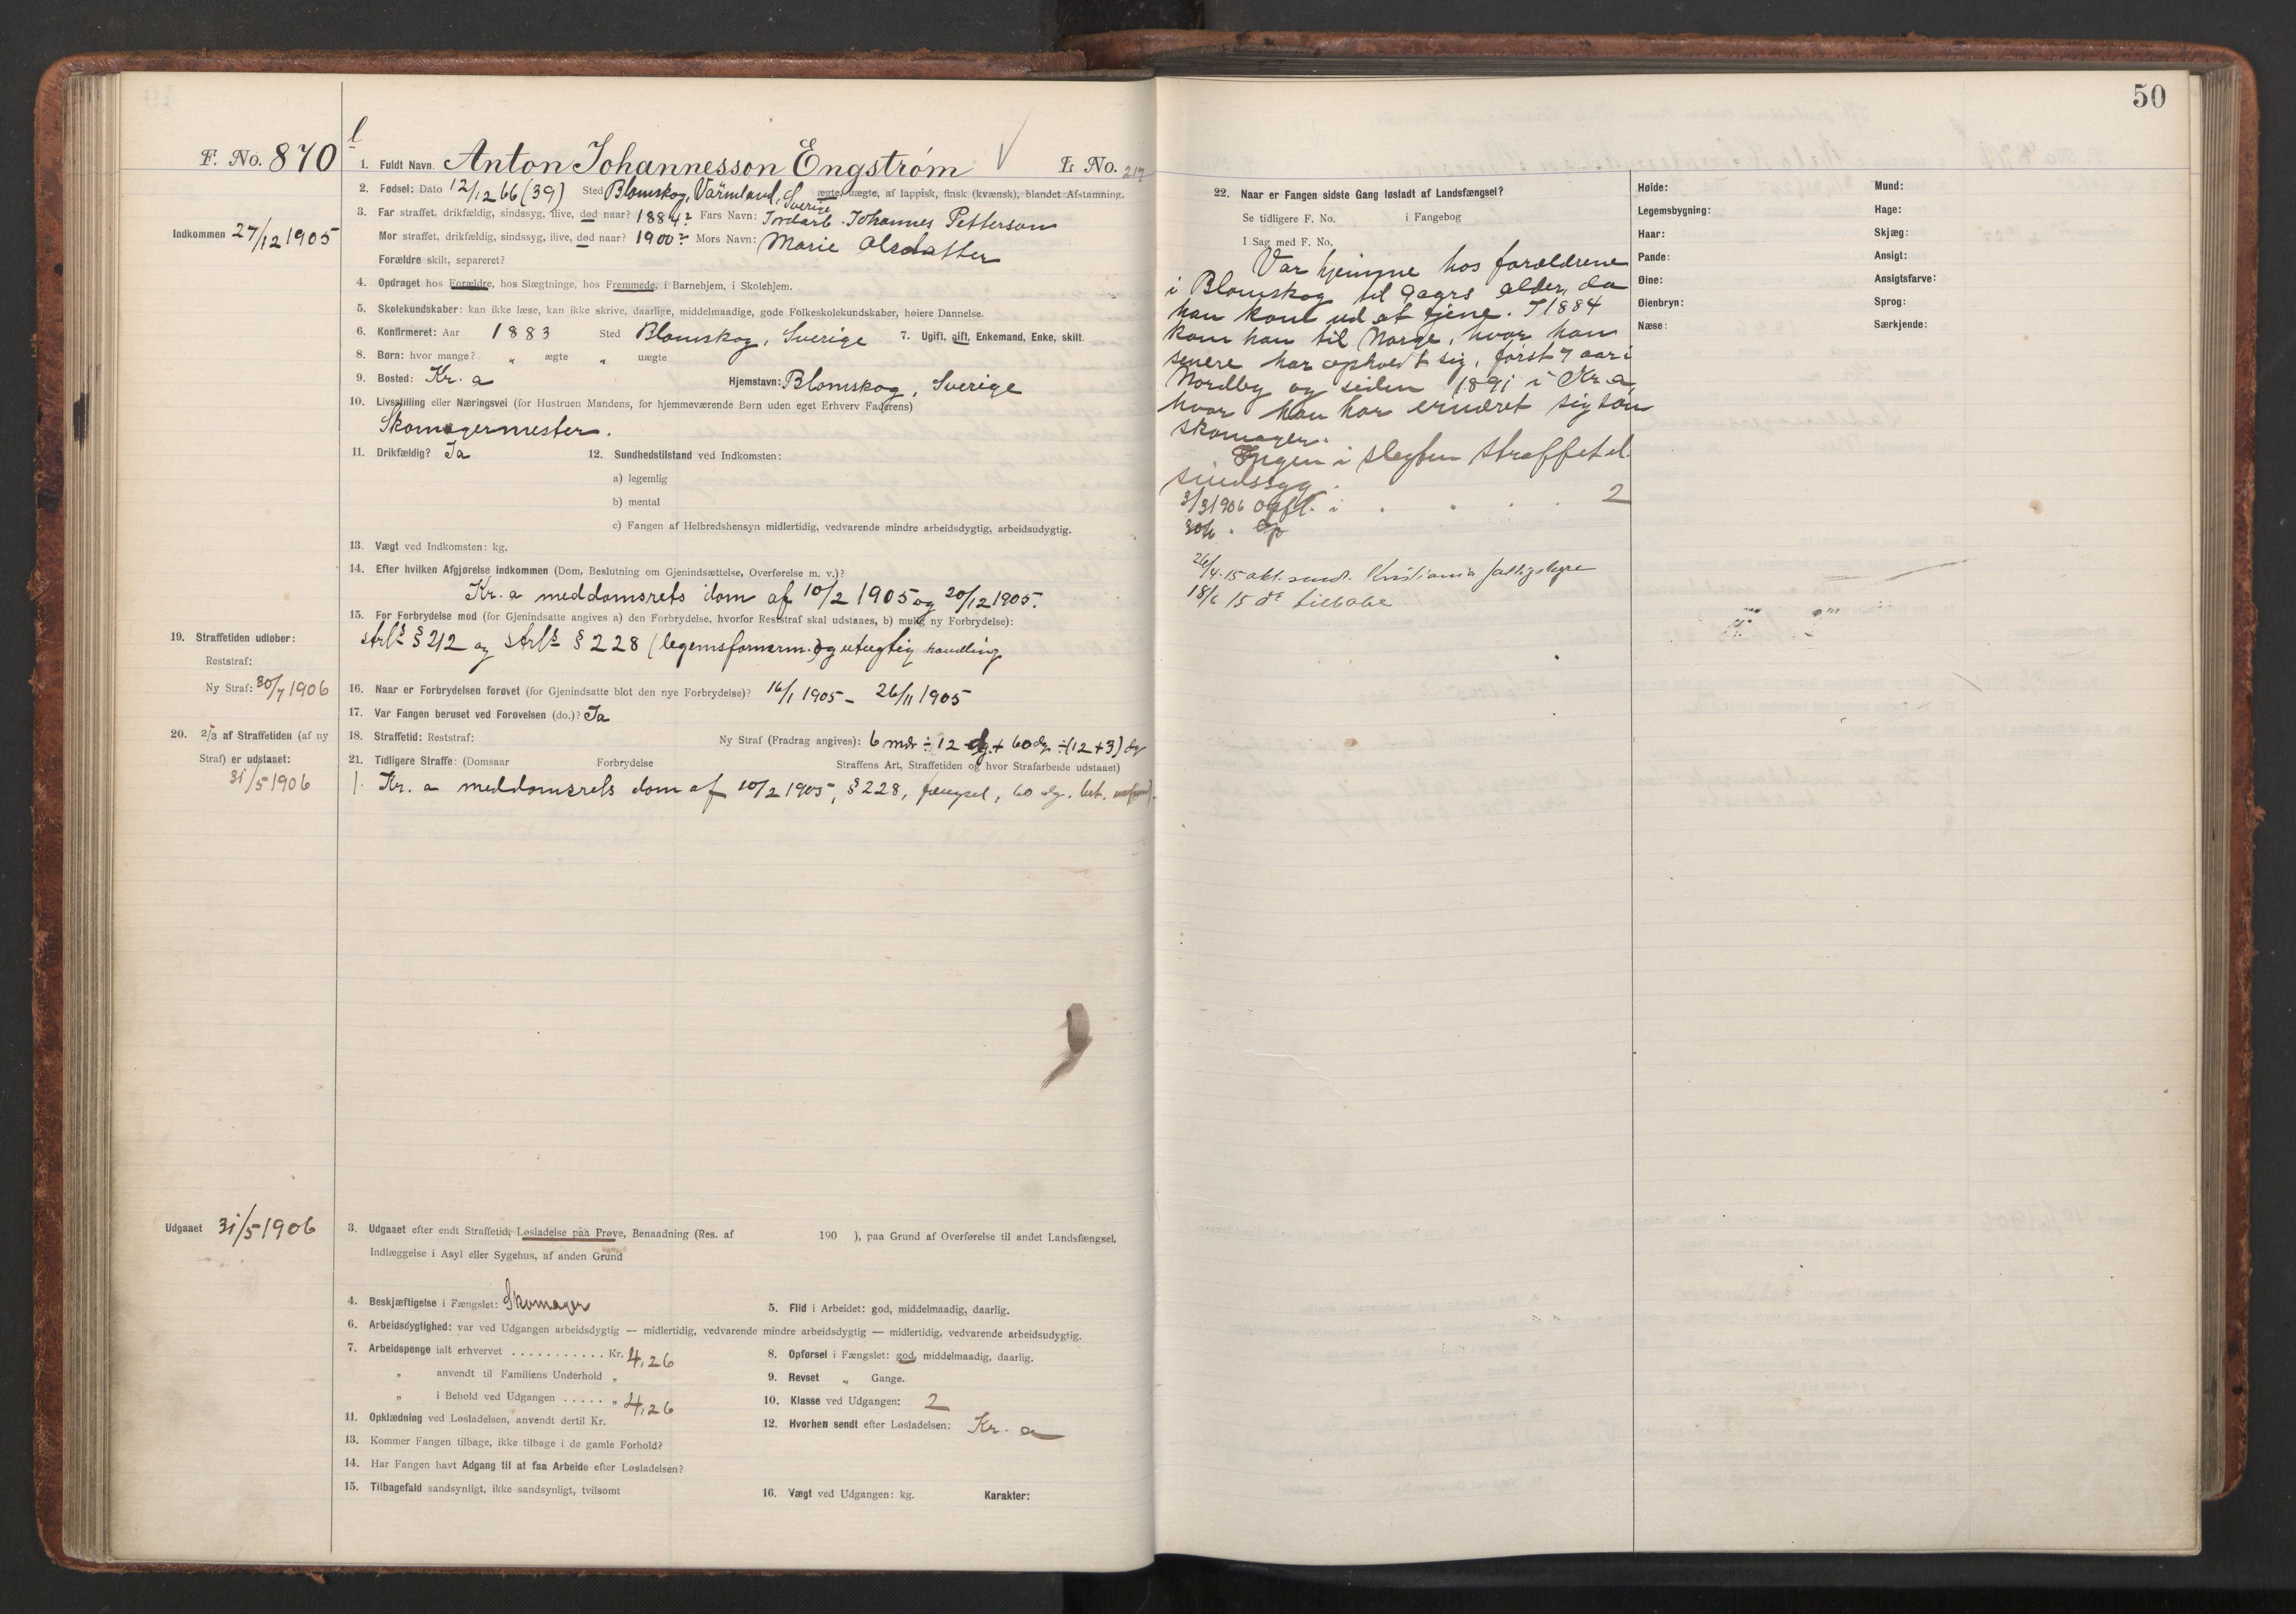 F. No. 870
1. Fuldt Navn. Anton Johannesson Engström L. No. 217
2. Fødsel: Dato 12/12 66 (39) Sted Blomskog, Värmland, Sverige ægte, uægte, af lappisk, finsk (kvænsk), blandet Afstamning.
Indkommen 27/12 1905
3. Far straffet, drikfældig, sindssyg, ilive, død naar? 1884? Fars Navn: Jordarb. Johannes Petterson
Mor straffet, drikfældig, sindssyg, ilive, død naar? 1900? Mors Navn: Marie Olsdatter
Forældre skilt, separeret?
4. Opdraget hos Forældre, hos Slægtninge, hos Fremmede, i Barnehjem, i Skolehjem.
5. Skolekundskaber: kan ikke læse, kan ikke skrive, daarlige, middelmaadige, gode Folkeskolekundskaber, høiere Dannelse.
6. Konfirmeret: Aar 1883 Sted Blomskog, Sverige 7. Ugift, gift, Enkemand, Enke, skilt.
8. Børn: hvor mange? " ægte " uægte
9. Bosted: Kr.a Hjemstavn: Blomskog, Sverige
10. Livsstilling eller Næringsvei (for Hustruen Mandens, for hjemmeværende Børn uden eget Erhverv Faderens)
Skomagermester.
11. Drikfældig? Ja 12. Sundhedstilstand ved Indkomsten:
a) legemlig
b) mental
c) Fangen af Helbredshensyn midlertidig, vedvarende mindre arbeidsdygtig, arbeidsudygtig.
13. Vægt ved Indkomsten: kg.
14. Efter hvilken Afgjørelse indkommen (Dom, Beslutning om Gjenindsættelse, Overførelse m. v.)?
Kr.a meddomsrets dom af 10/2 1905 og 20/12 1905.
15. For Forbrydelse mod (for Gjenindsatte angives a) den Forbrydelse, hvorfor Reststraf skal udstaaes, b) mulig ny Forbrydelse):
strl § 212 og strl § 228 (legemsfornærm.) og utugtig handling
19. Straffetiden udløber:
Reststraf:
Ny Straf: 30/7 1906
16. Naar er Forbrydelsen forøvet (for Gjenindsatte blot den nye Forbrydelse)? 16/1 1905 – 26/11 1905
17. Var Fangen beruset ved Forøvelsen (do.)? Ja
20. 2/3 af Straffetiden (af ny
Straf) er udstaaet:
31/5 1906
18. Straffetid: Reststraf: Ny Straf (Fradrag angives): 6 mdr ÷ 12 dg. + 60 dg ÷ (12 + 3) dg
21. Tidligere Straffe: (Domsaar Forbrydelse Straffens Art, Straffetiden og hvor Strafarbeide udstaaet)
1. Kr.a meddomsrets dom af 10/2 1905, § 228, fængsel, 60 dg. bet.
Udgaaet 31/5 1906
3. Udgaaet efter endt Straffetid, Løsladelse paa Prøve, Benaadning (Res. af 190 ), paa Grund af Overførelse til andet Landsfængsel,
Indlæggelse i Asyl eller Sygehus, af anden Grund
4. Beskjæftigelse i Fængslet: Skomager 5. Flid i Arbeidet: god, middelmaadig, daarlig.
6. Arbeidsdygtighed: var ved Udgangen arbeidsdygtig — midlertidig, vedvarende mindre arbeidsdygtig — midlertidig, vedvarende arbeidsudygtig.
7. Arbeidspenge ialt erhvervet ........... Kr. 4,26 8. Opførsel i Fængslet: god, middelmaadig, daarlig.
" anvendt til Familiens Underhold " 9. Revset " Gange.
" i Behold ved Udgangen ..... " 4,26 10. Klasse ved Udgangen: 2
11. Opklædning ved Løsladelsen, anvendt dertil Kr. 12. Hvorhen sendt efter Løsladelsen: Kr.a
13. Kommer Fangen tilbage, ikke tilbage i de gamle Forhold?
14. Har Fangen havt Adgang til at faa Arbeide efter Løsladelsen?
15. Tilbagefald sandsynligt, ikke sandsynligt, tvilsomt 16. Vægt ved Udgangen: kg. Karakter:
50
22. Naar er Fangen sidste Gang løsladt af Landsfængsel?
Se tidligere F. No. i Fangebog
I Sag med F. No.
Var hjemme hos forældrene
i Blomskog til 9 aars alder, da
han kom ud at tjene. I 1884
kom han til Norge, hvor han
senere har opholdt sig, først 7 aar i
Nordby og siden 1891 i Kr.a,
hvor han har ernæret sig som
skomager.
Ingen i slegten straffet el.
sindssyg.
3/3 1906 opfl. i . . . . 2
26/4.15 akt. sendt. Kristiania fattigstyre
18/6 15 do tilbake
Høide: Mund:
Legemsbygning: Hage:
Haar: Skjæg:
Pande: Ansigt:
Øine: Ansigtsfarve:
Øienbryn: Sprog:
Næse: Særkjende: